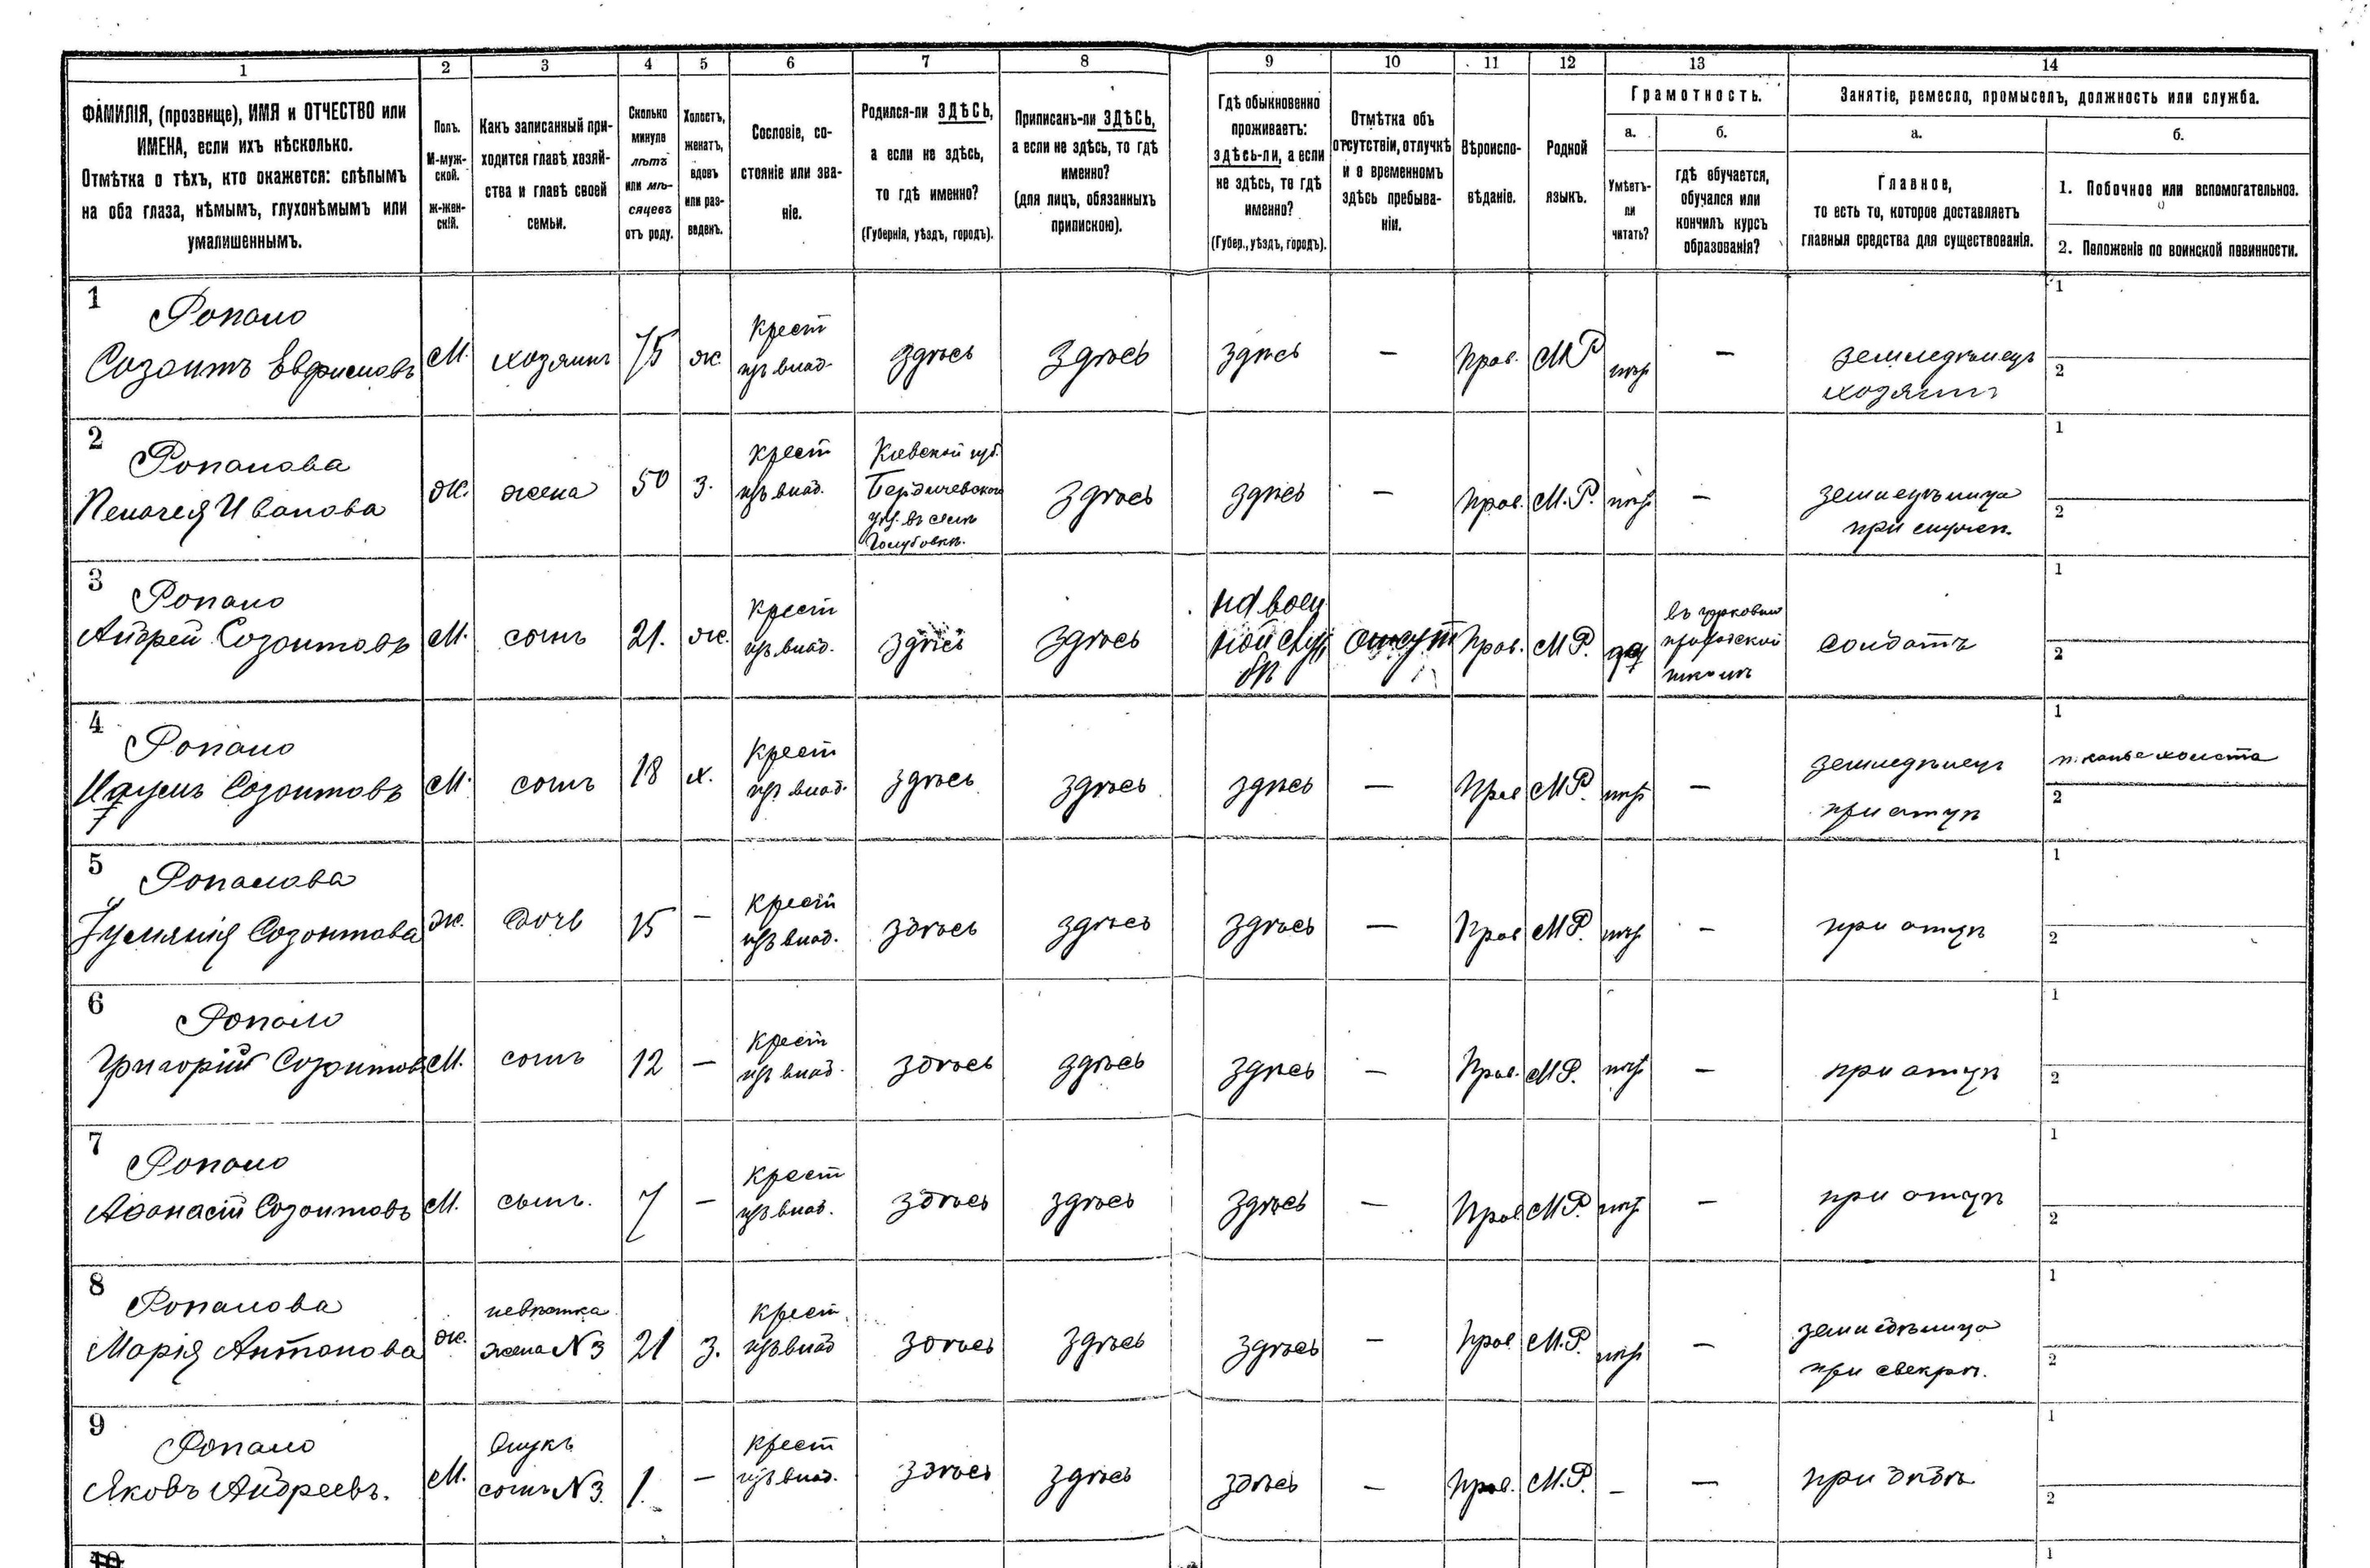 1 2 3 4 5 6 7 8 9 10 11 12 13 14
ФАМИЛІЯ, (прозвище), ИМЯ и ОТЧЕСТВО или
ИМЕНА, если ихъ нѣсколько.
Отмѣтка о тѣхъ, кто окажется: слѣпымъ
на оба глаза, нѣмымъ, глухонѣмымъ или
умалишеннымъ.
Полъ.
М-муж-
ской.
ж-жен-
скій.
Какъ записанный при-
ходится главѣ хозяй-
ства и главѣ своей
семьи.
Сколько
минуло
лѣтъ
или мѣ-
сяцевъ
отъ роду.
Холостъ,
женатъ,
вдовъ
или раз-
веденъ.
Сословіе, со-
стояніе или зва-
ніе.
Родился-ли ЗДѢСЬ,
а если не здѣсь,
то гдѣ именно?
(Губернія, уѣздъ, городъ).
Приписанъ-ли ЗДѢСЬ,
а если не здѣсь, то гдѣ
именно?
(для лицъ, обязанныхъ
припискою).
Гдѣ обыкновенно
проживаетъ:
здѣсь-ли, а если
не здѣсь, то гдѣ
именно?
(Губер., уѣздъ, городъ).
Отмѣтка объ
отсутствіи, отлучкѣ
и о временномъ
здѣсь пребыва-
ніи.
Вѣроиспо-
вѣданіе.
Родной
языкъ.
Грамотность.
а.
Умѣетъ-
ли
читать?
б.
гдѣ обучается,
обучался или
кончилъ курсъ
образованія?
Занятіе, ремесло, промыселъ, должность или служба.
а.
Главное,
то есть то, которое доставляетъ
главныя средства для существованія.
б.
1. Побочное или вспомогательное.
2. Положеніе по воинской повинности.
1
Ропало
Созонтъ
М.
хозяинъ
75
ж.
Крест
изъ влад.
здѣсь
здѣсь
здѣсь
—
Прав.
М.Р.
нѣт
—
земледѣлецъ
хозяинъ
1
2
2
Ропалова
Пелагея Иванова
ж.
жена
50
з.
крест
изъ влад.
Кіевской губ.
Бердичевского
уѣз. въ селѣ
Голубовкѣ.
здѣсь
здѣсь
—
Прав.
М.Р.
нѣт
—
при
1
2
3
Ропало
Андрей Созонтовъ
М.
сынъ
21.
ж.
Крест
изъ влад.
здѣсь
здѣсь
на воен
ной служ
бѣ
отсут
Прав.
М.Р.
да
въ церковно
приходской
школѣ
солдатъ
1
2
4
Ропало
Наумъ Созонтовъ
М.
сынъ
18
х.
Крест
изъ влад.
здѣсь
здѣсь
здѣсь
—
Прав
М.Р.
нѣт
—
земледѣлецъ
при отцѣ
1
тканье холста
2
5
Ропалова
Созонтова
ж.
дочь
15
—
Крест
изъ влад.
здѣсь
здѣсь
здѣсь
—
Прав
М.Р.
нѣт
—
при отцѣ
1
2
6
Ропало
Григорій Созонтов
М.
сынъ
12
—
Крест
изъ влад.
здѣсь
здѣсь
здѣсь
—
Прав.
М.Р.
нѣт
—
при отцѣ
1
2
7
Ропало
Афанасій Созонтовъ
М.
сынъ.
7
—
Крест
изъ влад.
здѣсь
здѣсь
здѣсь
—
Прав
М.Р.
нѣт
—
при отцѣ
1
2
8
Ропалова
Марія Антонова
ж.
невѣстка
жена N 3
21
з.
Крест
изъ влад
здѣсь
здѣсь
здѣсь
—
Прав
М.Р.
нѣт
—
земледѣлица
при свекрѣ.
1
2
9
Ропало
Яковъ Андреевъ.
М.
Внукъ
сынъ N 3
1.
—
Крест
изъ влад.
здѣсь
здѣсь
здѣсь
—
Прав.
М.Р.
—
—
при дѣдѣ
1
2
10
1